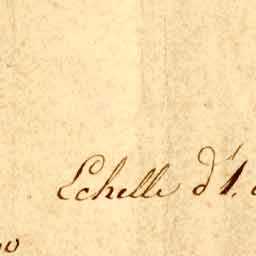 Echelle d'1.